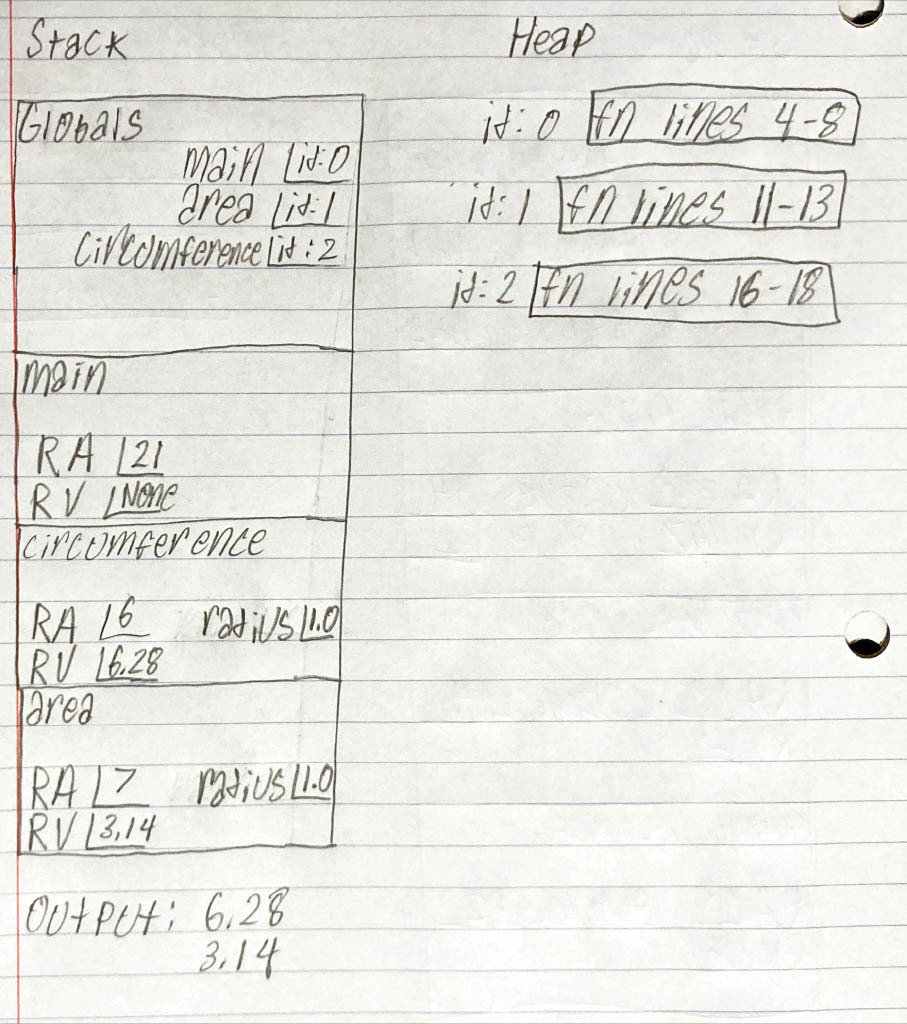 Stack Heap
Globals
main id:0
area id:1
circumference id:2
id:0 fn lines 4-8
id:1 fn lines 11-13
id:2 fn lines 16-18
main
RA 21
RV None
circumference
RA 6 radius 1.0
RV 6.28
area
RA 7 radius 1.0
RV 3.14
Output: 6.28
3.14